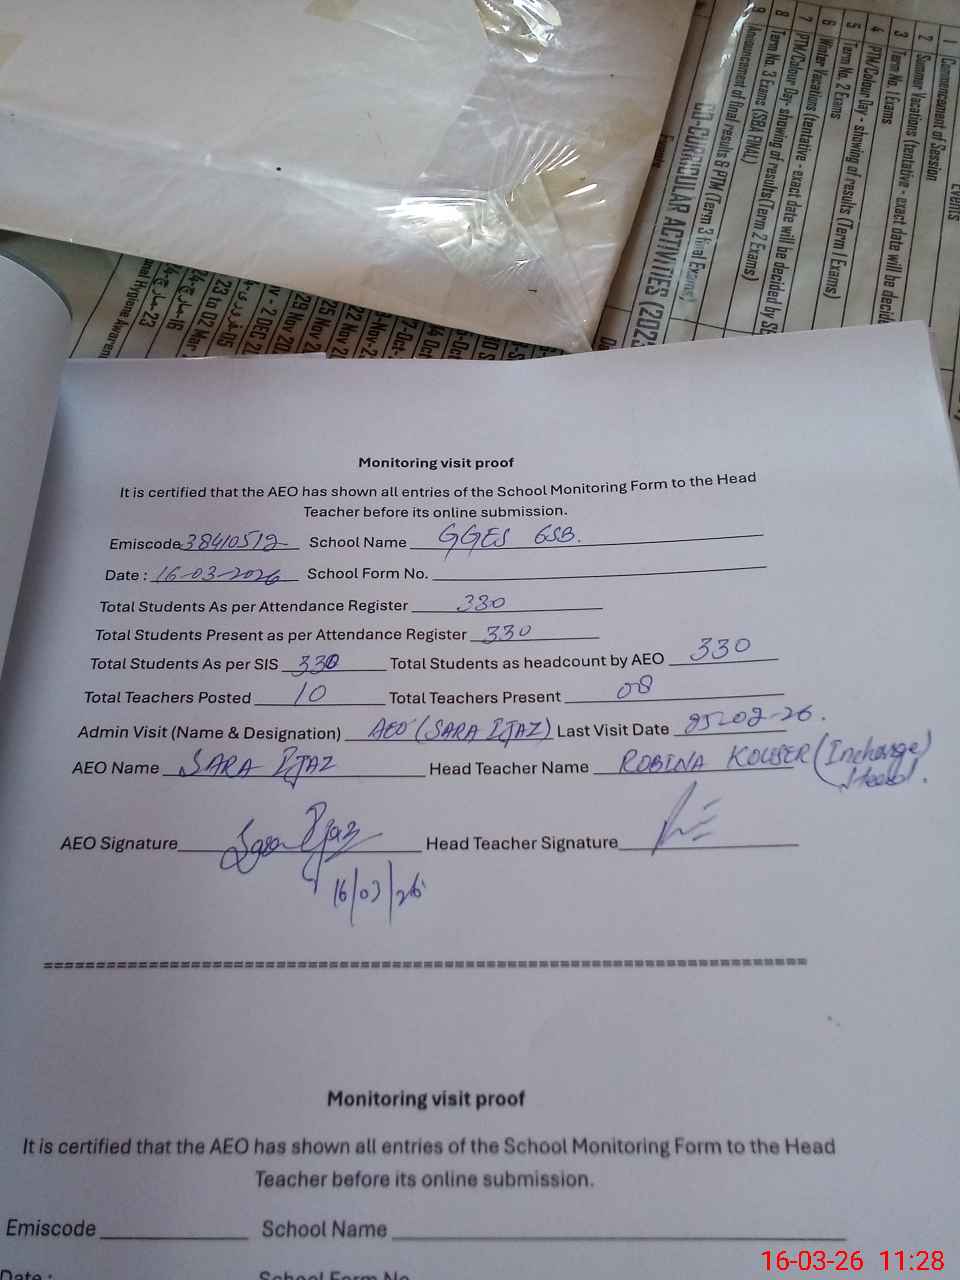 Events
1 Commencement of Session
2 Summer Vacations (tentative - exact date will be decid
3 Term No. 1 Exams
4 PTM/Colour Day - showing of results (Term 1 Exams)
5 Term No. 2 Exams
6 Winter Vacations (tentative - exact date will be decided by
7 PTM/Colour Day- showing of results(Term 2 Exams)
8 Term No. 3 Exams (SBA FINAL)
9 Announcement of final results & PTM (Term 3 final Exams)
CO-CURRICULAR ACTIVITIES (202
Monitoring visit proof
It is certified that the AEO has shown all entries of the School Monitoring Form to the Head
Teacher before its online submission.
Emiscode 38410512 School Name GGES 6SB.
Date : 16-03-2026 School Form No.
Total Students As per Attendance Register 330
Total Students Present as per Attendance Register 330
Total Students As per SIS 330 Total Students as headcount by AEO 330
Total Teachers Posted 10 Total Teachers Present 08
Admin Visit (Name & Designation) AEO (SARA IJAZ) Last Visit Date 25-02-26.
AEO Name SARA IJAZ Head Teacher Name ROBINA KOUSER (Incharge Head).
AEO Signature Sara Ijaz Head Teacher Signature
16/03/26
Monitoring visit proof
It is certified that the AEO has shown all entries of the School Monitoring Form to the Head
Teacher before its online submission.
Emiscode School Name
Date : School Form No.
16-03-26 11:28